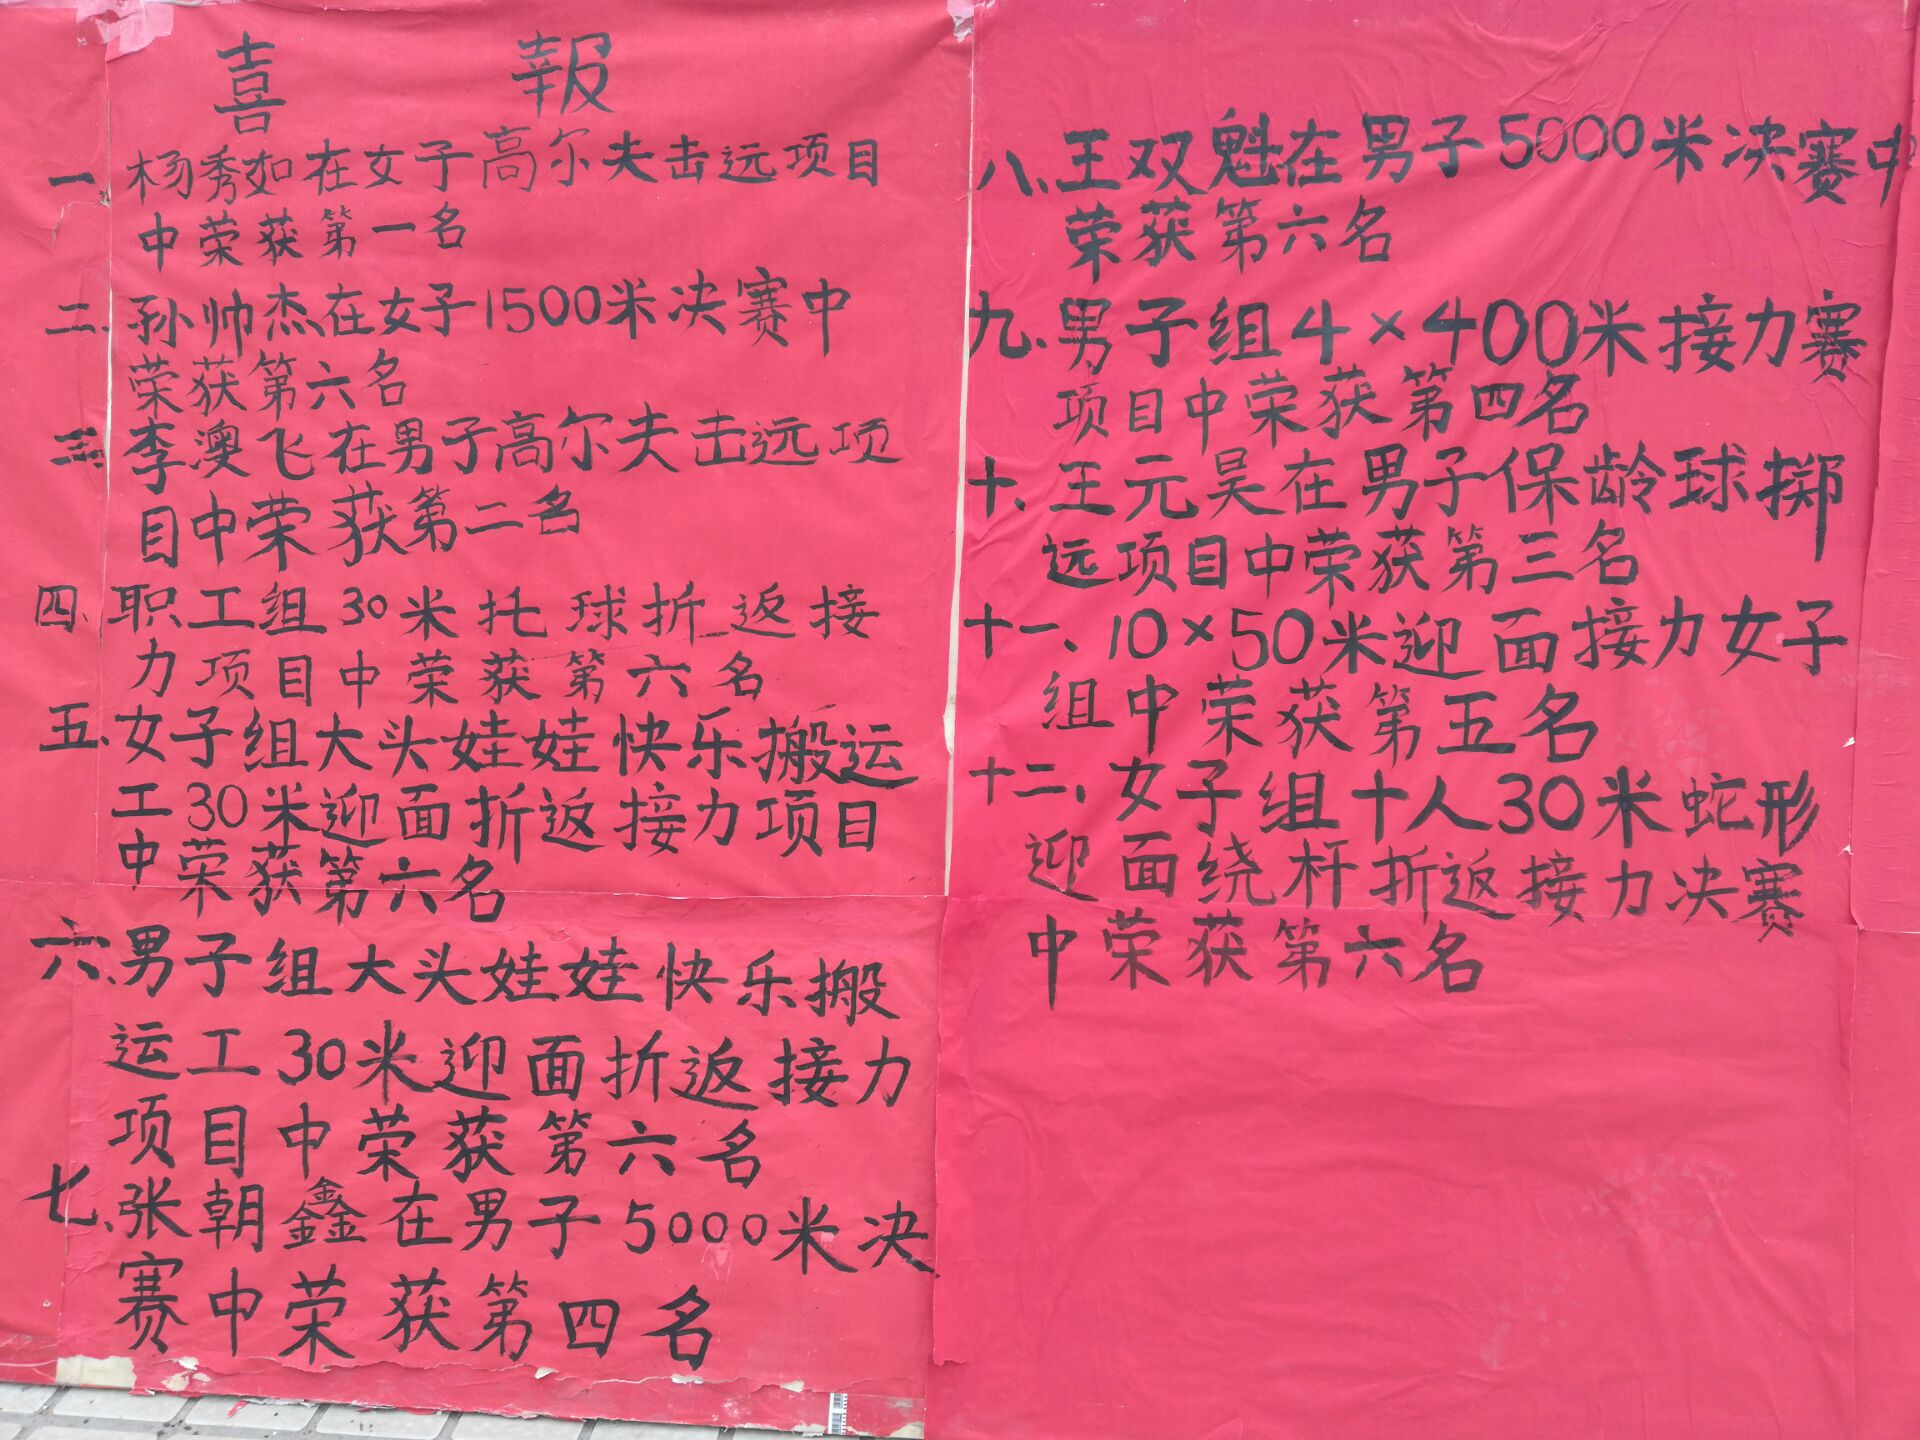 喜報
一、杨秀如在女子高尔夫击远项目
中荣获第一名
二、孙帅杰在女子1500米决赛中
荣获第六名
三、李澳飞在男子高尔夫击远项
目中荣获第二名
四、职工组30米托球折返接
力项目中荣获第六名
五、女子组大头娃娃快乐搬运
工30米迎面折返接力项目
中荣获第六名
六、男子组大头娃娃快乐搬
运工30米迎面折返接力
项目中荣获第六名
七、张朝鑫在男子5000米决
赛中荣获第四名
八、王双魁在男子5000米决赛中
荣获第六名
九、男子组4×400米接力赛
项目中荣获第四名
十、王元昊在男子保龄球掷
远项目中荣获第三名
十一、10×50米迎面接力女子
组中荣获第五名
十二、女子组十人30米蛇形
迎面绕杆折返接力决赛
中荣获第六名